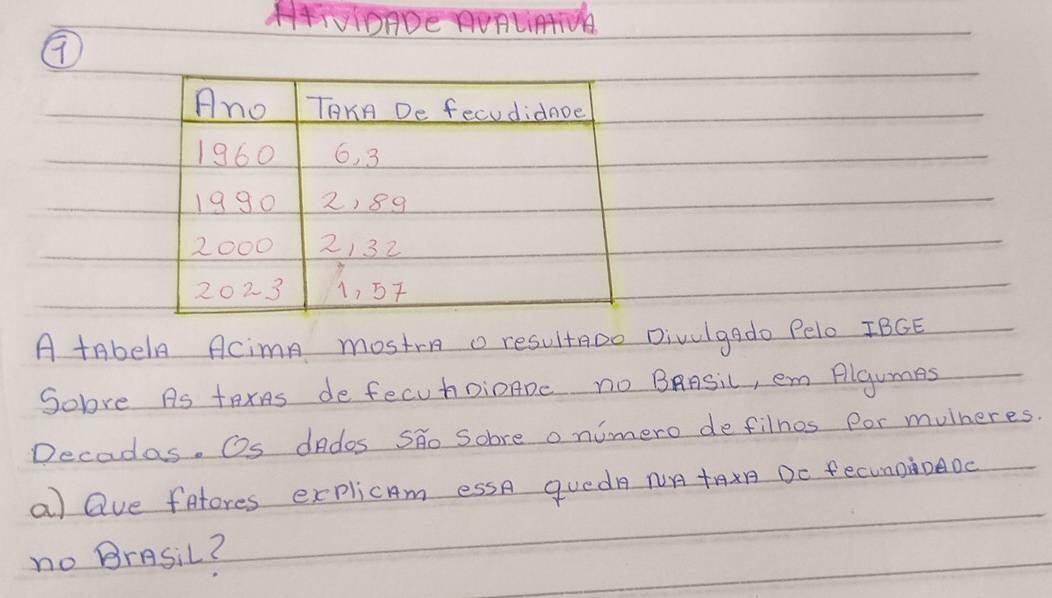 ATIVIDADE AVALIATIVA
1
Ano TAXA De fecudidADe
1960 6,3
1990 2,89
2000 2,32
2023 1,57
A tAbelA AcimA mostrA o resultADo Divulgado Pelo IBGE
Sobre As tAXAs de fecuNDiDADe no BRASiL, em AlgumAs
Decadas. Os dAdos SÃo Sobre o número de filhos Por mulheres.
a) Que fAtores explicAm essA quedA NA tAXA De fecunDiDADe
no BrASiL?